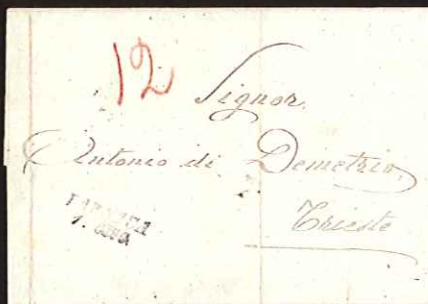 12
Signor.
Antonio di Demetrio.
Trieste